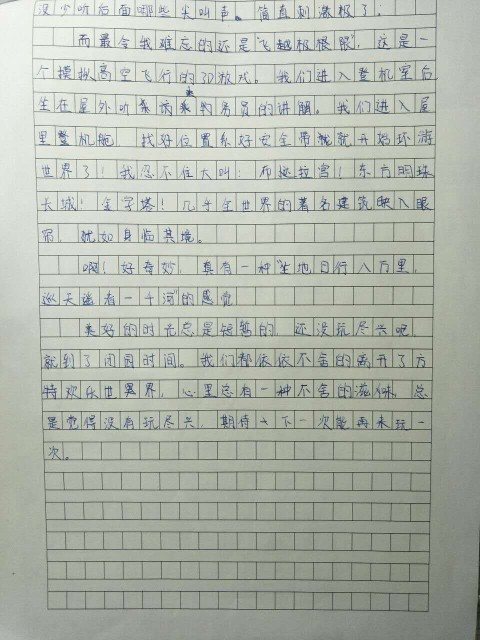 没少听后面哪些尖叫声。简直刺激极了；
而最令我难忘的还是"飞越极限"，这是一
个模拟高空飞行的3D游戏。我们进入登机室后
坐在屋外听乘务员的讲解。我们进入屋
里登机舱，找好位置系好安全带就开始环游
世界了！我忍不住大叫：布达拉宫！东方明珠
长城！金字塔！几乎全世界的著名建筑映入眼
帘，犹如身临其境。
啊！好奇妙，真有一种"坐地日行八万里，
巡天遥看一千河"的感觉
美好的时光总是短暂的，还没玩尽兴呢，
就到了闭园时间。我们都依依不舍的离开了方
特欢乐世界，心里总有一种不舍的滋味，总
是觉得没有玩尽兴，期待下一次能再来玩一
次。